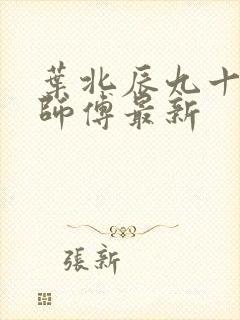 葉北辰九十
師傅最新
張新